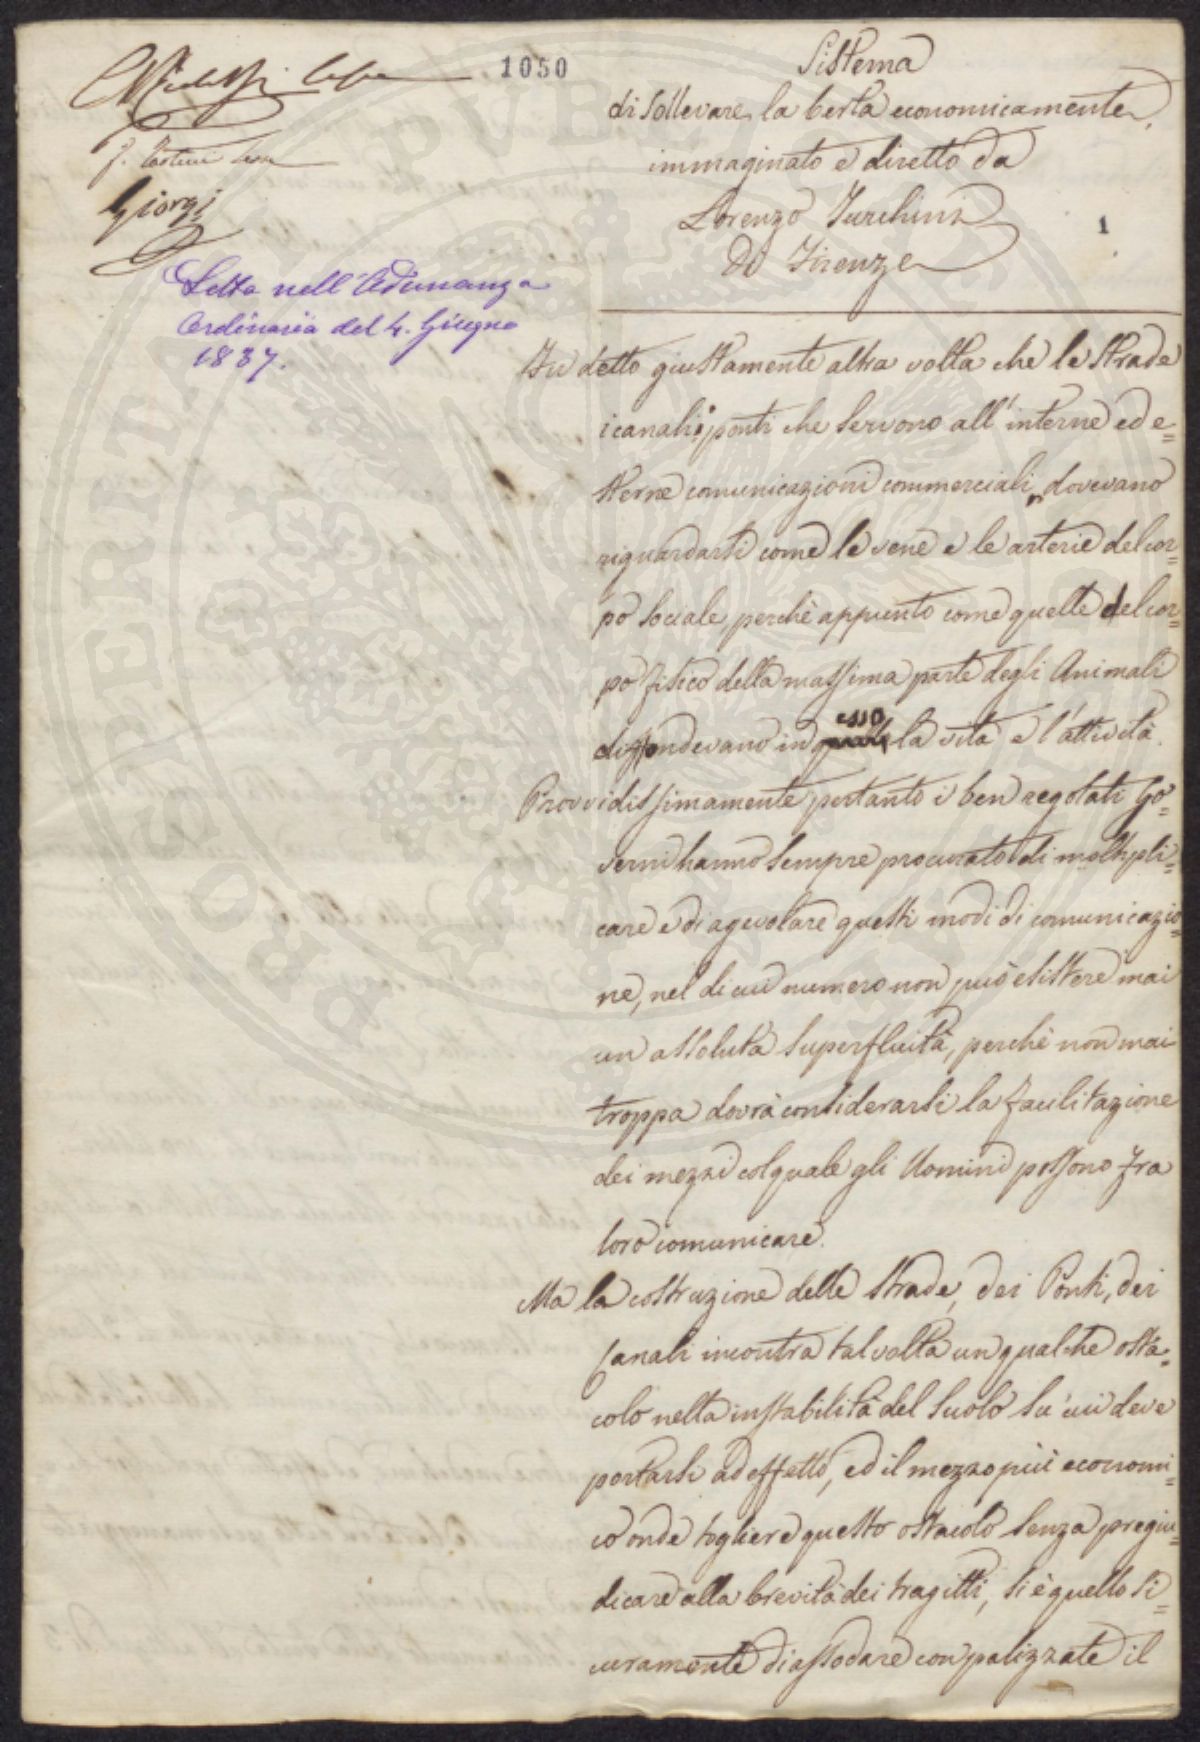 1050
Giorgi
Letta nell'Adunanza
Ordinaria del 4. Giugno
1837.
Sistema
di sollevare la berta economicamente,
immaginato e diretto da
Lorenzo Turchini
Di Firenze
1
Fu detto giustamente altra volta che le strade
i canali i ponti che servono all'interne ed e=
sterne comunicazioni commerciali, dovevano
riguardarsi come le vene e le arterie del cor=
po sociale, perchè appunto come quelle del cor=
po fisico della massima parte degli Animali
diffondevano in esso la vita e l'attività.
Provvidissimamente pertanto i ben regolati Go=
verni hanno sempre procurato di moltipli=
care e di agevolare questi modi di comunicazio=
ne, nel di cui numero non può esistere mai
un assoluta superfluità, perchè non mai
troppa dovrà considerarsi la facilitazione
dei mezzi col quale gli Uomini possono fra
loro comunicare.
Ma la costruzione delle strade, dei Ponti, dei
Canali incontra talvolta un qualche osta=
colo nella instabilità del suolo su cui deve
portarsi ad effetto, ed il mezzo più economi=
co onde togliere questo ostacolo senza pregiu=
dicare alla brevità dei tragitti, si è quello si=
curamente di assodare con palizzate il
PROSPERITATI PVBLICAE